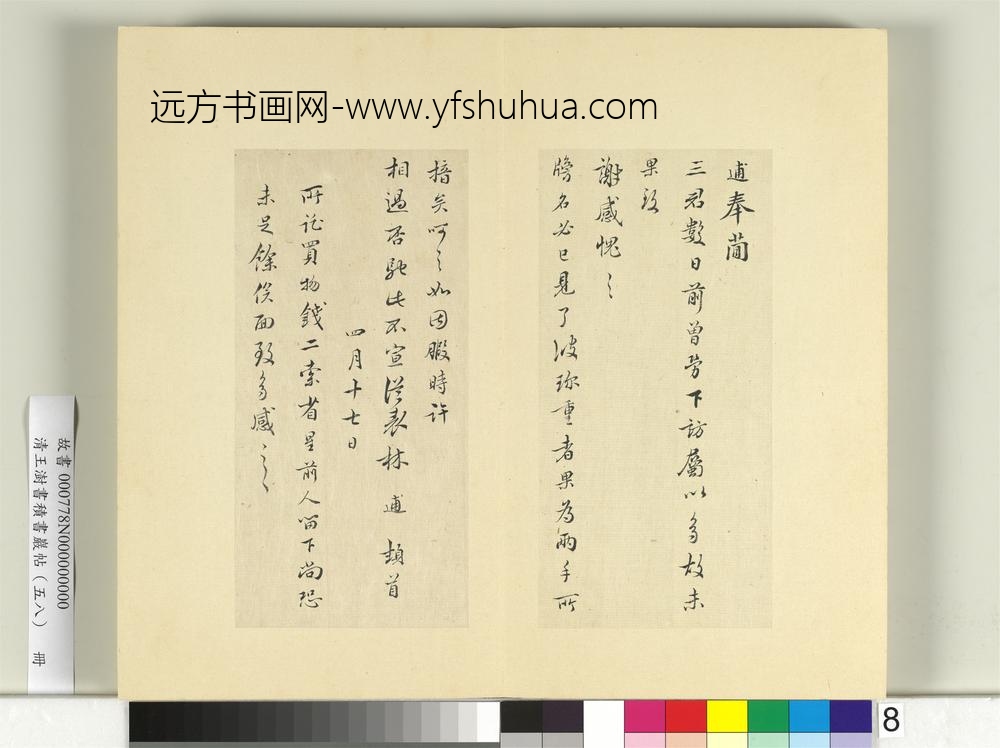 远方书画网-www.yfshuhua.com
逋奉簡
三君數日前曾勞下訪屬以多故未
果致
謝感愧〻
牓名必已見了彼珎重者果為兩手所
揞矣呵〻如因暇時許
相過否馳此不宣從表林逋頓首
四月十七日
所託買物錢二索省是前人留下尚恐
未足餘俟面致多感〻〻
故書000778N000000000
清王澍書積書巖帖（五八） 冊
8